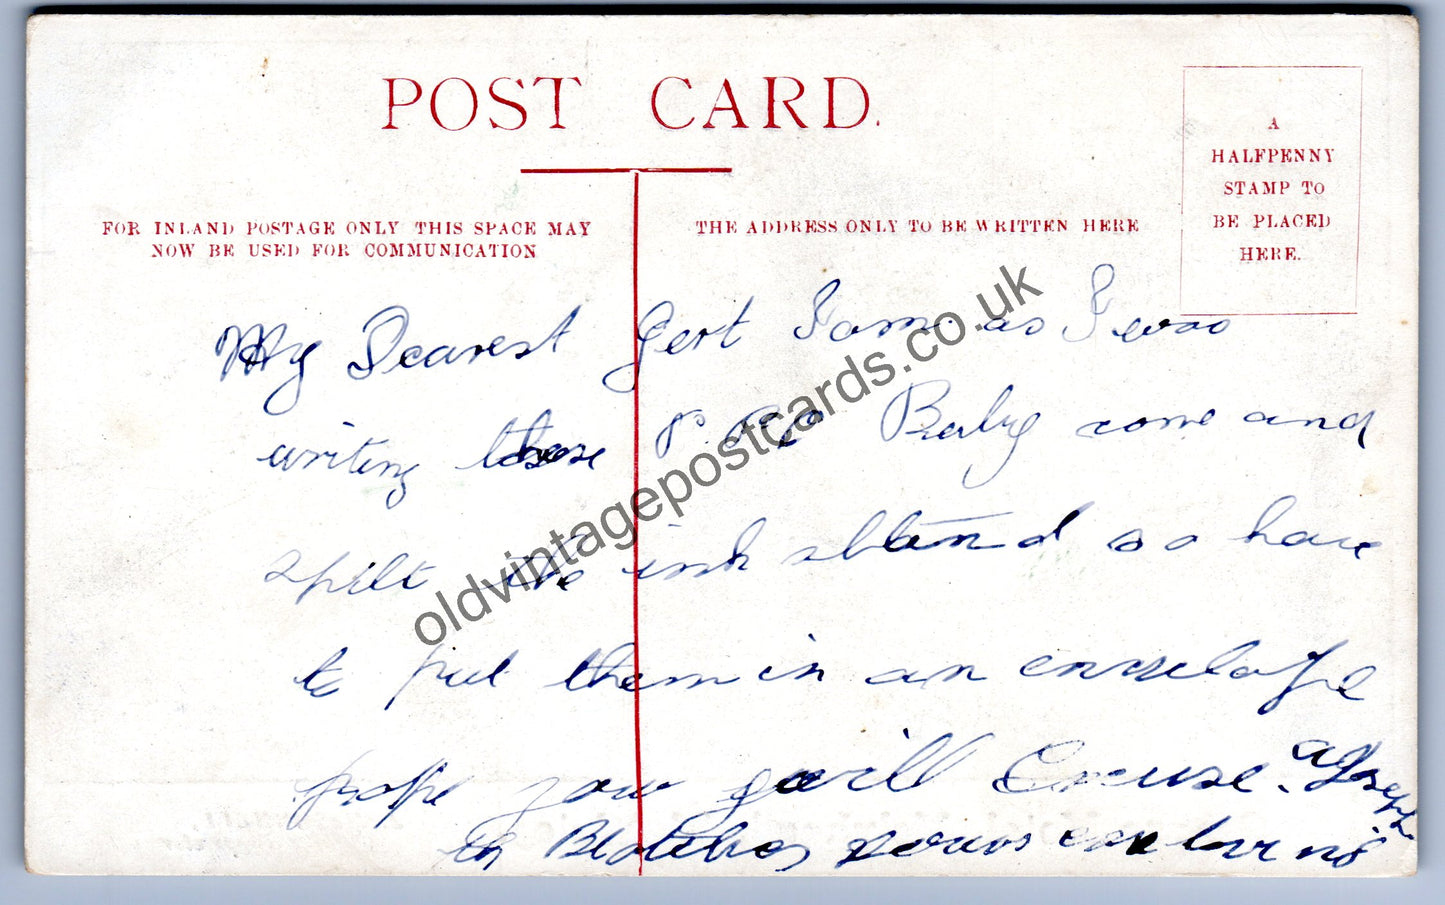 POST CARD.
A
HALFPENNY
STAMP TO
BE PLACED
HERE.
FOR INLAND POSTAGE ONLY THIS SPACE MAY
NOW BE USED FOR COMMUNICATION
THE ADDRESS ONLY TO BE WRITTEN HERE
My Dearest Gert I am as I was
writing these Baby come and
spilt the ink abland so have
to put them in an envelope
hope you will Excuse.
Blotches yours
oldvintagepostcards.co.uk